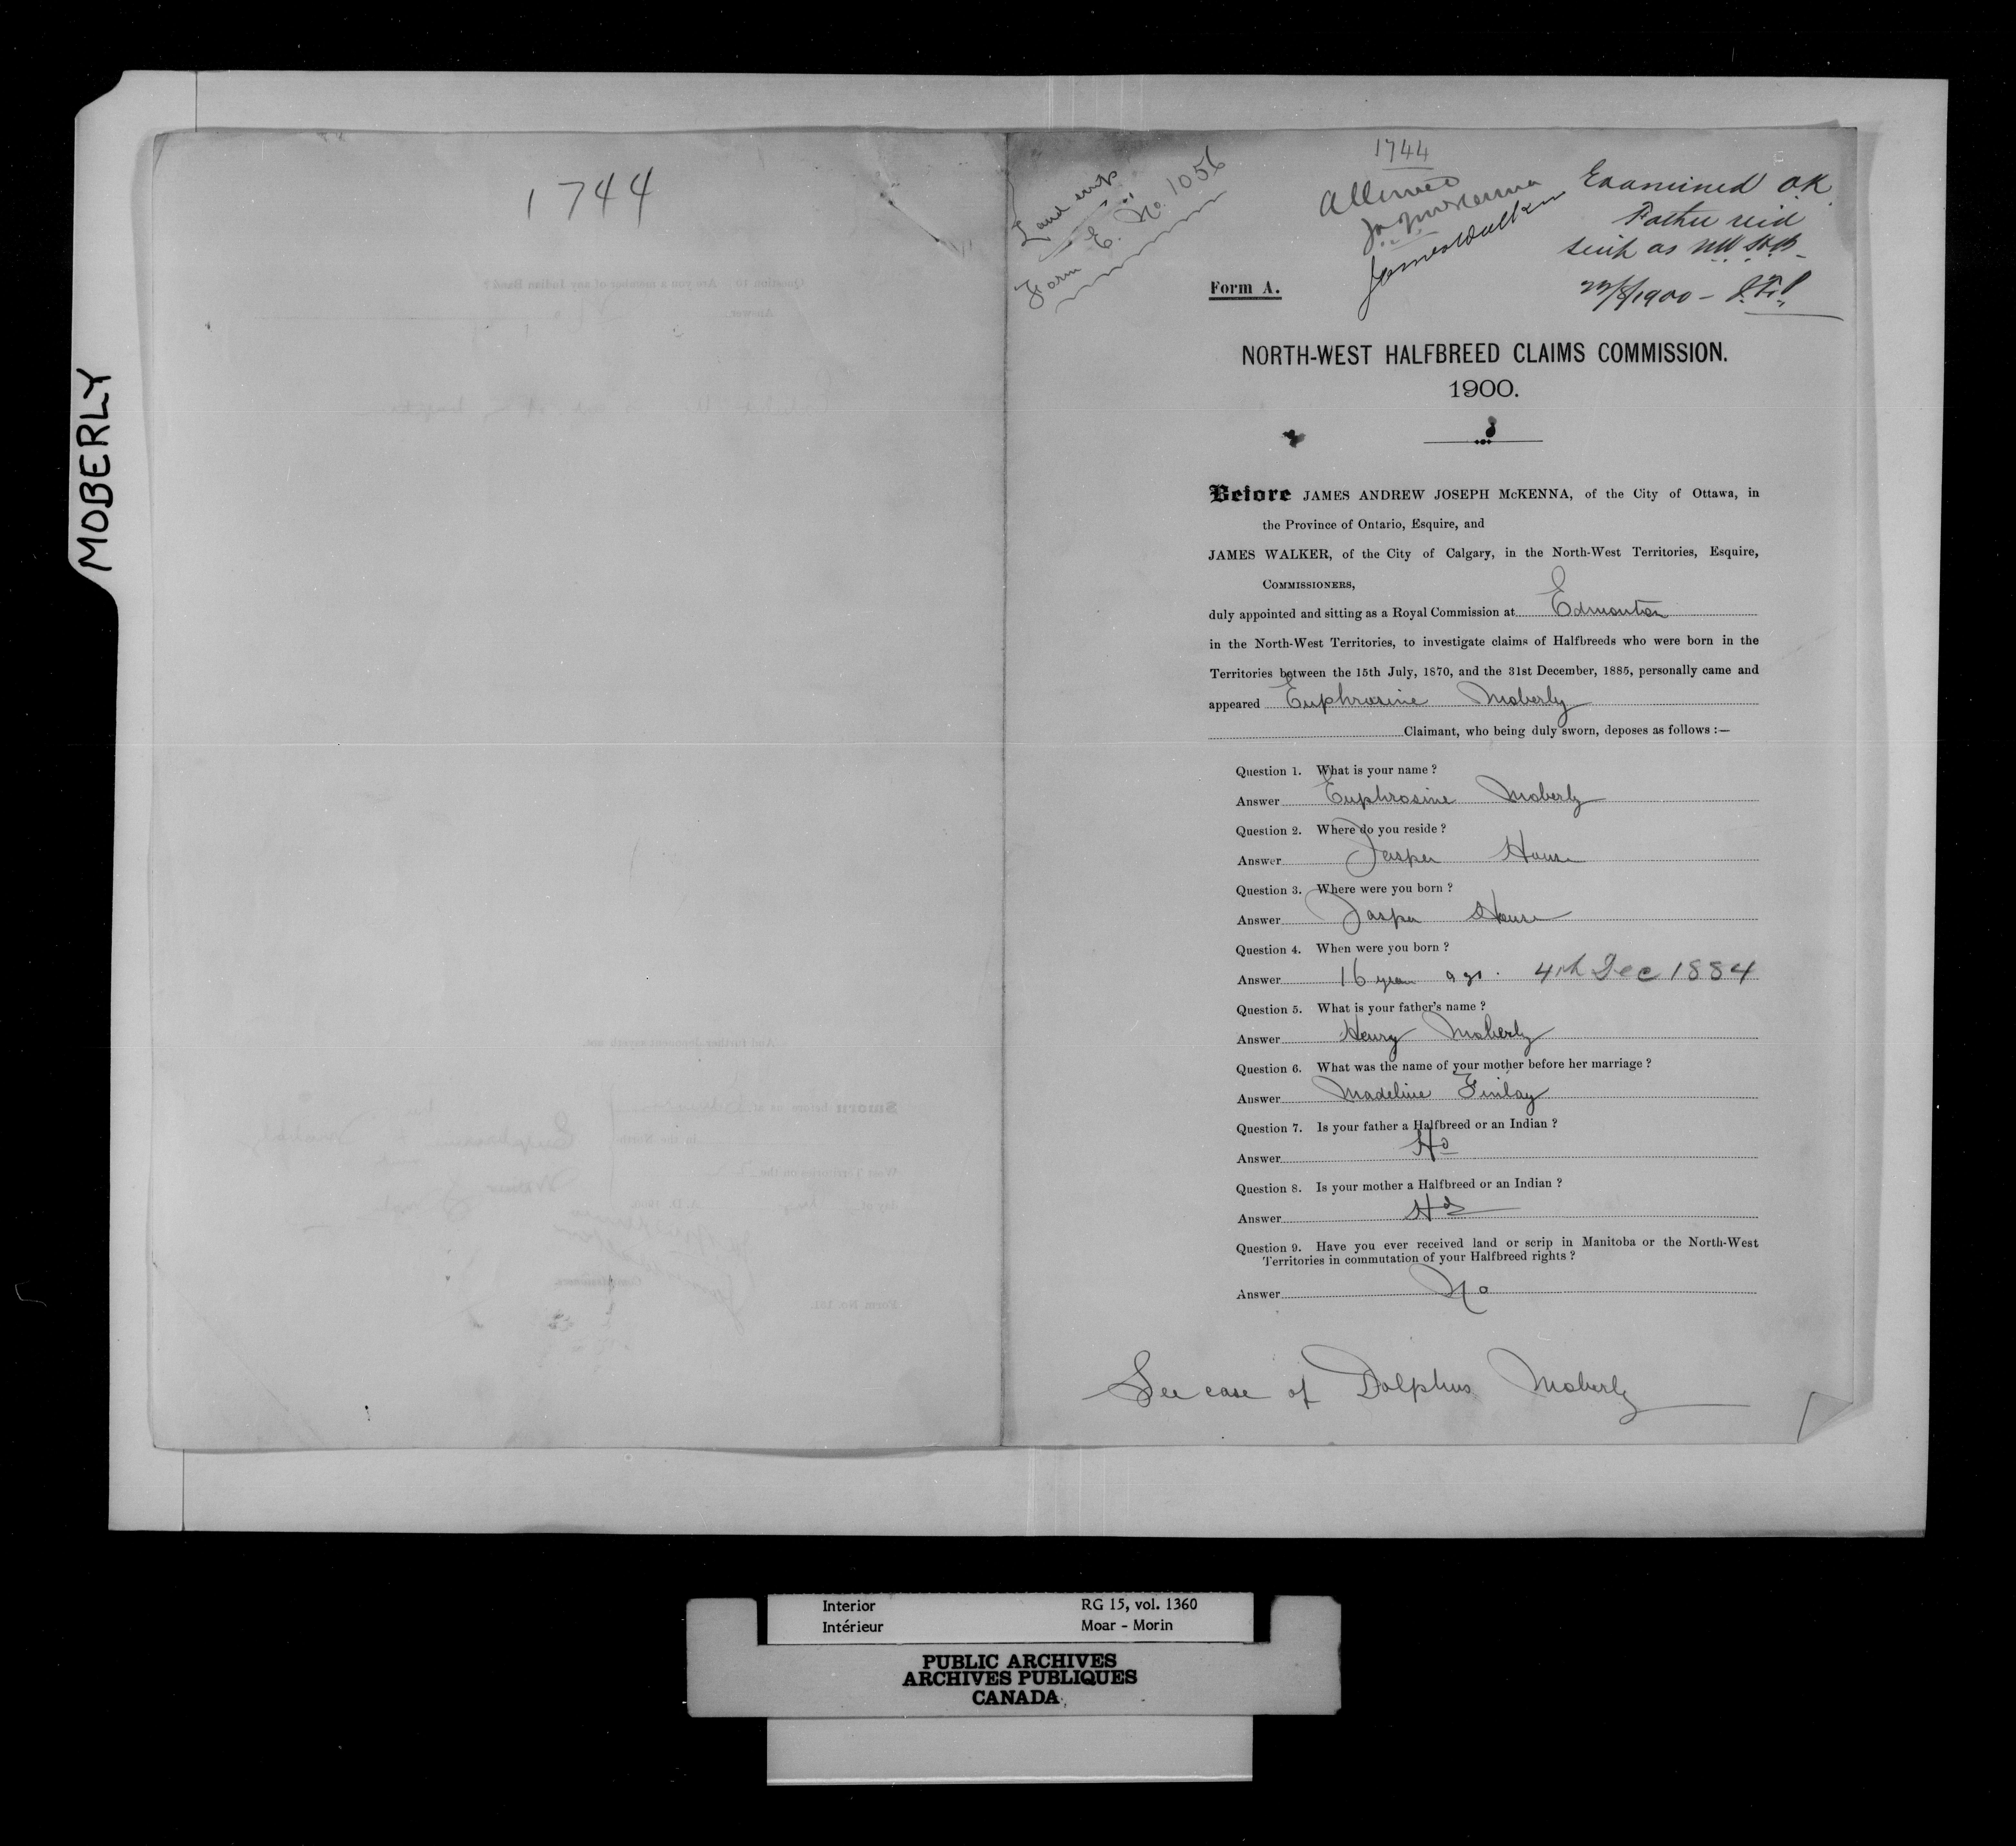 MOBERLY
1744
Land scrip
Form E. No. 1056
1744
Allowed
J A J McKenna
James Walker
Examined OK.
Father recd
scrip as NW H.B.
1900 -
Form A.
NORTH-WEST HALFBREED CLAIMS COMMISSION.
1900.
Before JAMES ANDREW JOSEPH McKENNA, of the City of Ottawa, in
the Province of Ontario, Esquire, and
JAMES WALKER, of the City of Calgary, in the North-West Territories, Esquire,
COMMISSIONERS,
duly appointed and sitting as a Royal Commission at Edmonton
in the North-West Territories, to investigate claims of Halfbreeds who were born in the
Territories between the 15th July, 1870, and the 31st December, 1885, personally came and
appeared Euphrosine Moberly
Claimant, who being duly sworn, deposes as follows :—
Question 1. What is your name ?
Answer Euphrosine Moberly
Question 2. Where do you reside ?
Answer Jasper House
Question 3. Where were you born ?
Answer Jasper House
Question 4. When were you born ?
Answer 16 years ago. 4th Dec 1884
Question 5. What is your father's name ?
Answer Henry Moberly
Question 6. What was the name of your mother before her marriage ?
Answer Madeline Finlay
Question 7. Is your father a Halfbreed or an Indian ?
Answer Hb
Question 8. Is your mother a Halfbreed or an Indian ?
Answer Hb
Question 9. Have you ever received land or scrip in Manitoba or the North-West
Territories in commutation of your Halfbreed rights ?
Answer No
See case of Dolphus Moberly
Interior RG 15, vol. 1360
Intérieur Moar - Morin
PUBLIC ARCHIVES
ARCHIVES PUBLIQUES
CANADA